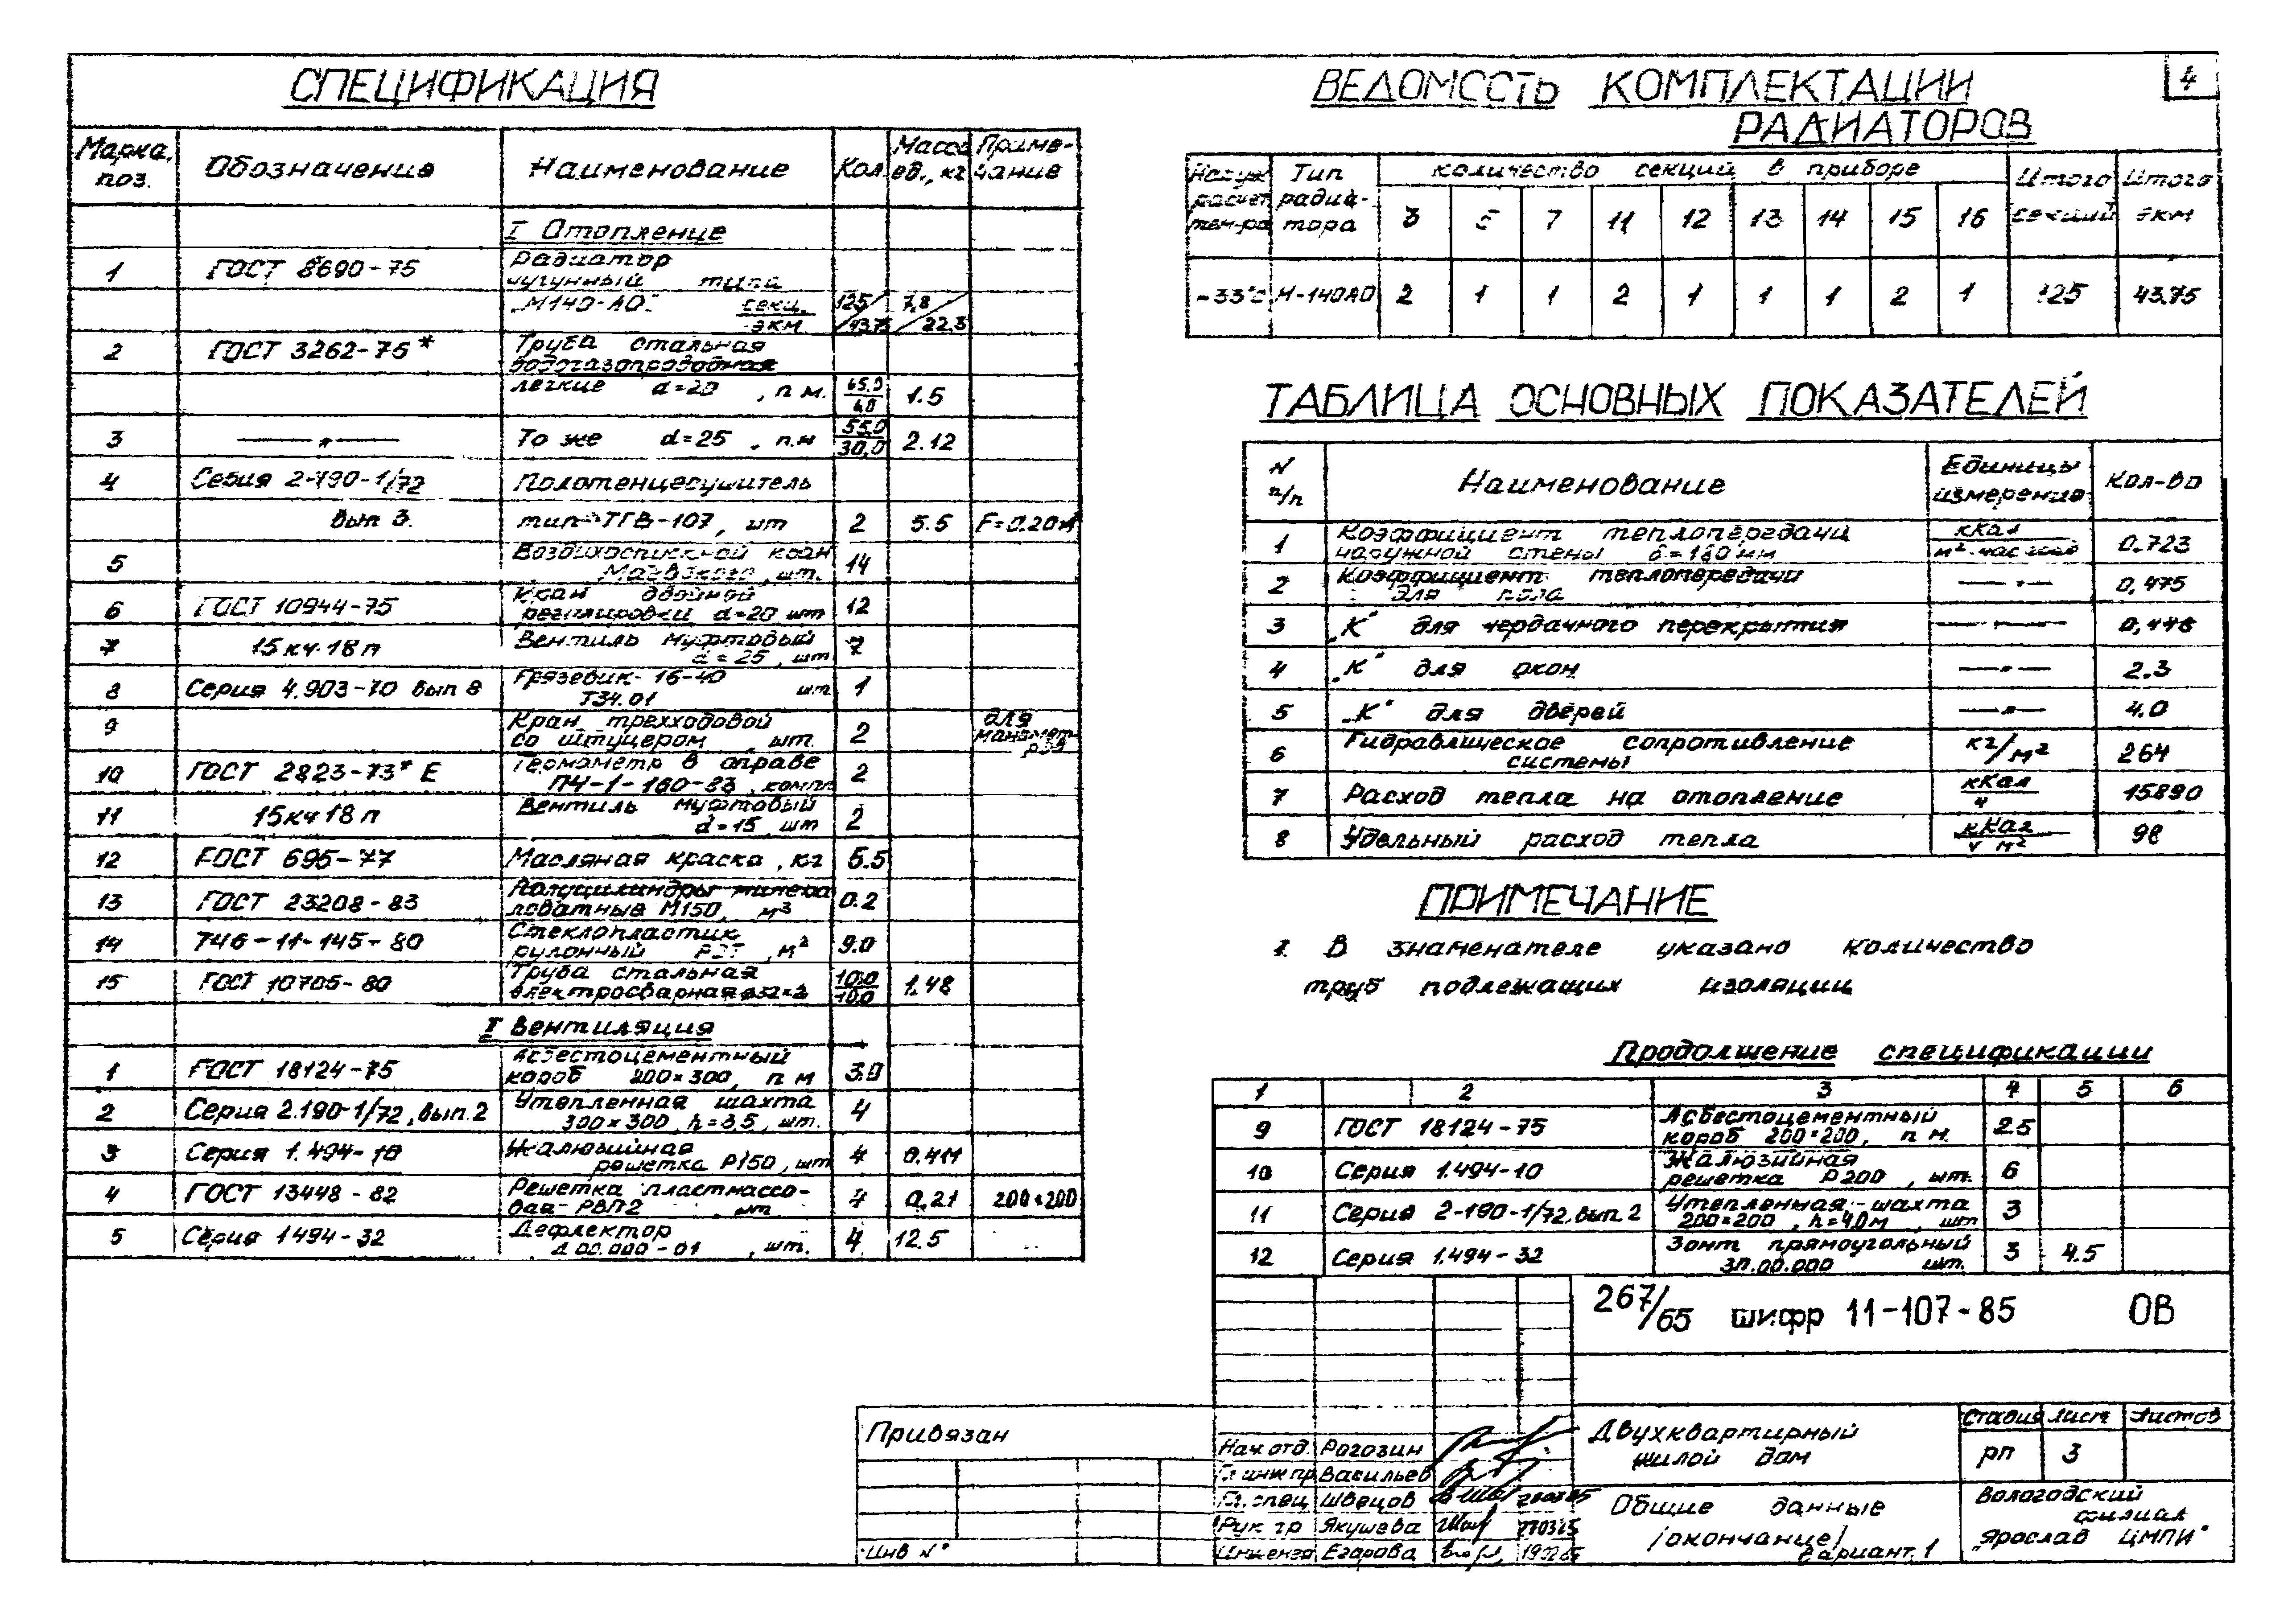 4
СПЕЦИФИКАЦИЯ
Марка, поз. Обозначение Наименование Кол. Масса ед., кг Приме-чание
I Отопление
1 ГОСТ 8690-75 Радиатор
чугунный типа
„М140-АО" секц. 125 7,8
экм 43.75 22.3
2 ГОСТ 3262-75* Труба стальная
водогазопроводная
легкие d=20 , п.м. 65.0/4.0 1.5
3 —„— То же d=25 , п.м 55.0/30,0 2.12
4 Серия 2-190-1/72 Полотенцесушитель
вып 3. тип ТГВ-107, шт 2 5.5 F=0.20м
5 Воздухоспускной кран
Маевского, шт. 14
6 ГОСТ 10944-75 Кран двойной
регулировки d=20 шт 12
7 15кч18п Вентиль муфтовый
d=25, шт 7
8 Серия 4.903-10 вып 8 Грязевик 16-40
Т34.01 шт 1
9 Кран трехходовой для
со штуцером , шт. 2 маномет-ров
10 ГОСТ 2823-73* Е Термометр в оправе
П4-1-160-83, компл 2
11 15кч18п Вентиль муфтовый
d=15 шт 2
12 ГОСТ 695-77 Масляная краска, кг 5.5
13 ГОСТ 23208-83 Полуцилиндры минера
ловатные М150, м³ 0.2
14 ТУ6-11-145-80 Стеклопластик
рулонный РСТ , м² 9.0
15 ГОСТ 10705-80 Труба стальная
электросварная 10.0/10.0 1.48
II Вентиляция
1 ГОСТ 18124-75 Асбестоцементный
короб 200×300, п м 3.0
2 Серия 2.190-1/72, вып.2 Утепленная шахта
300×300, h=3.5, шт. 4
3 Серия 1.494-10 Жалюзийная
решетка Р150, шт 4
4 ГОСТ 13448-82 Решетка пластмассо-
вая РВП2 шт 4 0.21 200×200
5 Серия 1494-32 Дефлектор
Д00.000-01 , шт. 4 12.5
ВЕДОМОСТЬ КОМПЛЕКТАЦИИ
РАДИАТОРОВ
Наруж расчет тем-ра Тип радиа-тора количество секций в приборе Итого секций Итого экм
3 5 7 11 12 13 14 15 16
-33°С М-140АО 2 1 1 2 1 1 1 2 1 125 43.75
ТАБЛИЦА ОСНОВНЫХ ПОКАЗАТЕЛЕЙ
N п/п Наименование Единицы измерения Кол-во
1 Коэффициент теплопередачи ккал
наружной стены δ=180мм м²·час град 0.723
2 Коэффициент теплопередачи
для пола —„— 0,475
3 „К" для чердачного перекрытия —„—
4 „К" для окон —„— 2.3
5 „К" для дверей —„— 4.0
6 Гидравлическое сопротивление
системы кг/м² 264
7 Расход тепла на отопление кКал/ч 15890
8 Удельный расход тепла кКал/ч м² 98
ПРИМЕЧАНИЕ
1. В знаменателе указано количество
труб подлежащих изоляции
Продолжение спецификации
1 2 3 4 5 6
9 ГОСТ 18124-75 Асбестоцементный
короб 200×200, п м. 25
10 Серия 1.494-10 Жалюзийная
решетка Р200 , шт. 6
11 Серия 2-190-1/72, вып. 2 Утепленная шахта
200×200 , h=4.0м , шт 3
12 Серия 1.494-32 Зонт прямоугольный
ЗП.00.000 шт. 3 4.5
267/65 шифр 11-107-85 ОВ
Привязан
Инв N°
Нач.отд. Рогозин
Гл инж пр Васильев
Гл.спец Швецов
Рук гр Якушева
Инженер Егарова
Двухквартирный
жилой дом
Стадия Лист Листов
рп 3
Общие данные
/окончание/
Вариант.1
Вологодский
филиал
„Ярослав ЦМПИ"